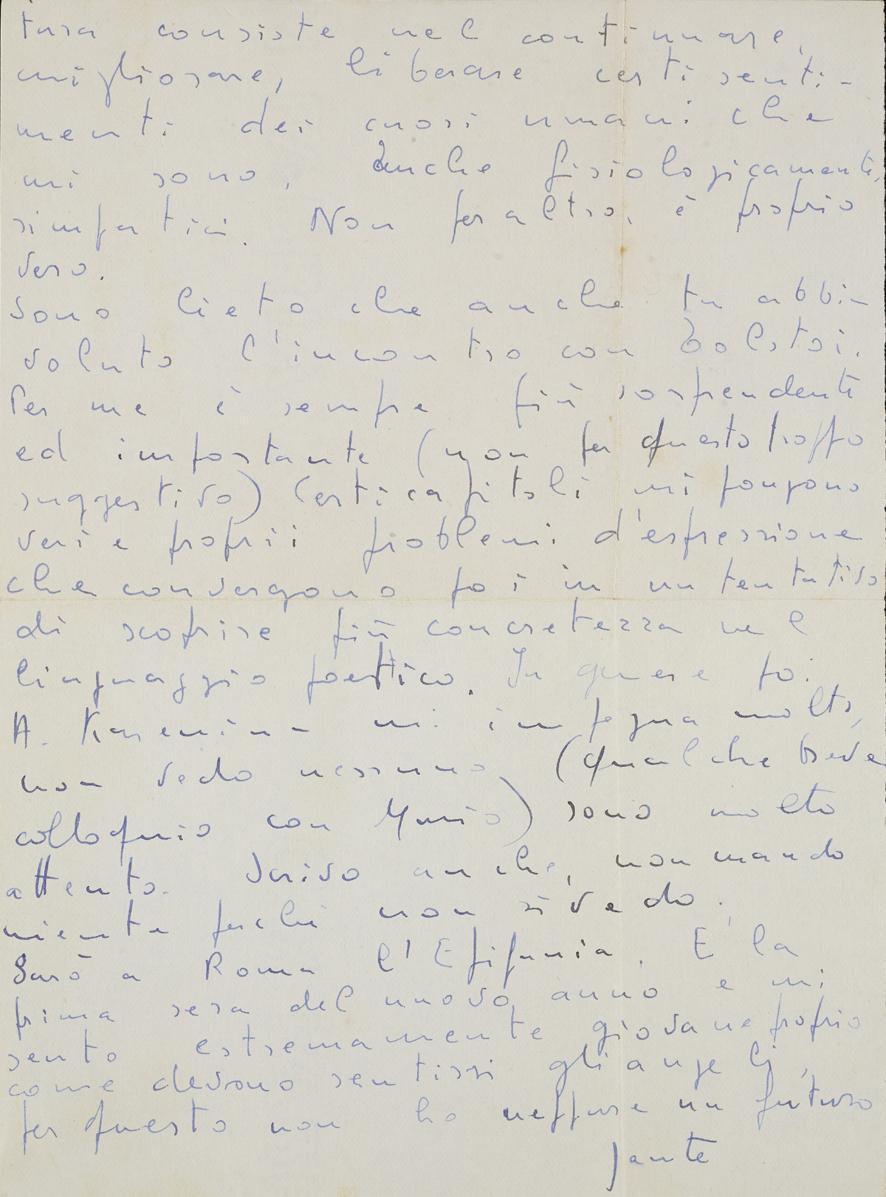 tura consiste nel continuare,
migliorare, liberare certi senti-
menti dei cuori umani che
mi sono, anche fisiologicamente,
simpatici. Non per altro, è proprio
vero.
Sono lieto che anche tu abbia
voluto l'incontro con Tolstoi.
Per me è sempre più sorprendente
ed importante (non per questo troppo
suggestivo) certi capitoli mi pongono
veri e proprii problemi d'espressione
che convergono poi in un tentativo
di scoprire più concretezza nel
linguaggio poetico. In genere poi
A. Karenina mi impegna molto,
non vedo nessuno (qualche breve
colloquio con) sono molto
attento. Scrivo anche, non mando
niente perché non si veda.
Sarò a Roma l'Epifania. È la
prima sera del nuovo anno e mi
sento estremamente giovane proprio
come devono sentirsi gli angeli,
per questo non ho neppure un futuro